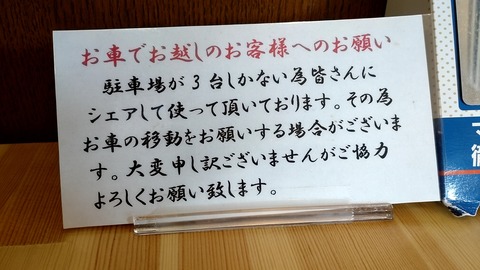 お車でお越しのお客様へのお願い
駐車場が3台しかない為皆さんに
シェアして使って頂いております。その為
お車の移動をお願いする場合がございま
す。大変申し訳ございませんがご協力
よろしくお願い致します。